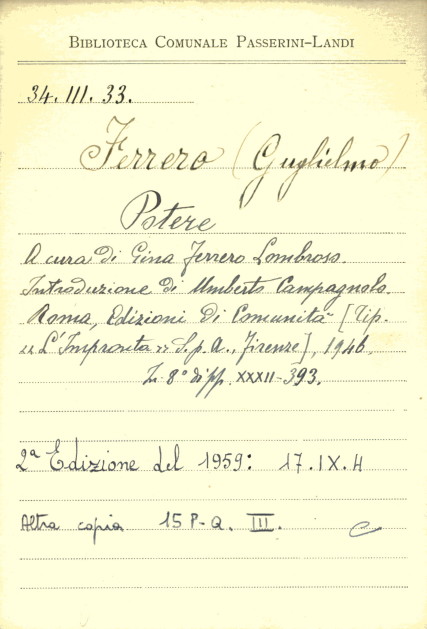 BIBLIOTECA COMUNALE PASSERINI-LANDI
34. III. 33.
Ferrero (Guglielmo)
Potere
A cura di Gina Ferrero Lombroso.
Introduzione di Umberto Campagnolo.
Roma, Edizioni di Comunità [Tip.
« L'Impronta » S.p.A., Firenze], 1946.
In 8° di pp. XXXII-393.
2ª Edizione del 1959: 17.IX.H
Altra copia 15 P-Q. III.